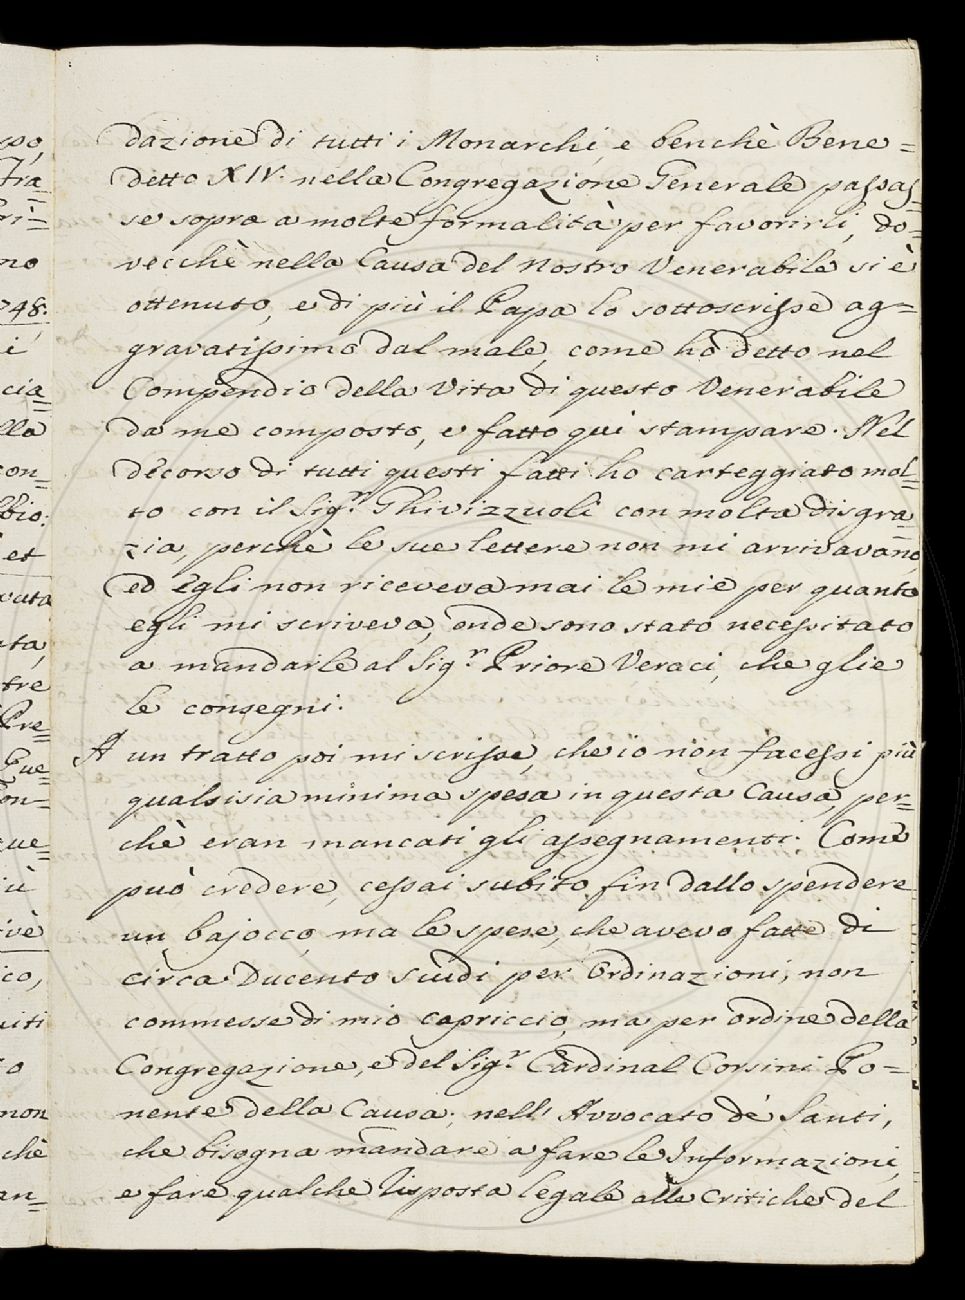 dazione di tutti i Monarchi, e benchè Bene=
detto XIV. nella Congregazione Generale passas=
se sopra a molte formalità per favorirli, do=
vecchè nella Causa del nostro Venerabile si è
ottenuto, e di più il Papa lo sottoscrisse ag=
gravatissimo dal male, come ho detto nel
Compendio della Vita di questo Venerabile
da me composto, e fatto qui stampare. Nel
decorso di tutti questi fatti ho carteggiato mol=
to con il Sig.r Ghivizzuoli con molta disgra=
zia, perchè le sue lettere non mi arrivavano,
ed Egli non riceveva mai le mie per quanto
egli mi scriveva, onde sono stato necessitato
a mandarle al Sig.r Priore Veraci, che glie
le consegni.
A un tratto poi mi scrisse, che io non facessi più
qualsisia minima spesa in questa Causa, per=
chè eran mancati gli assegnamenti. Come
può credere, cessai subito fin dallo spendere
un bajocco, ma le spese, che avevo fatte di
circa Ducento Scudi per Ordinazioni, non
commesse di mio capriccio, ma per ordine della
Congregazione, e del Sig.r Cardinal Corsini Po=
nente della Causa; nell' Avvocato de' Santi,
che bisogna mandare a fare le Informazioni,
e fare qualche risposta legale alle Critiche del
po,
Fra=
no
748.
i
cia=
lla
con=
bio:
et
vuta
ta,
tre
Pre=
Gue=
on=
ue=
iù
ivè
co,
iti
o
non
chè
an=